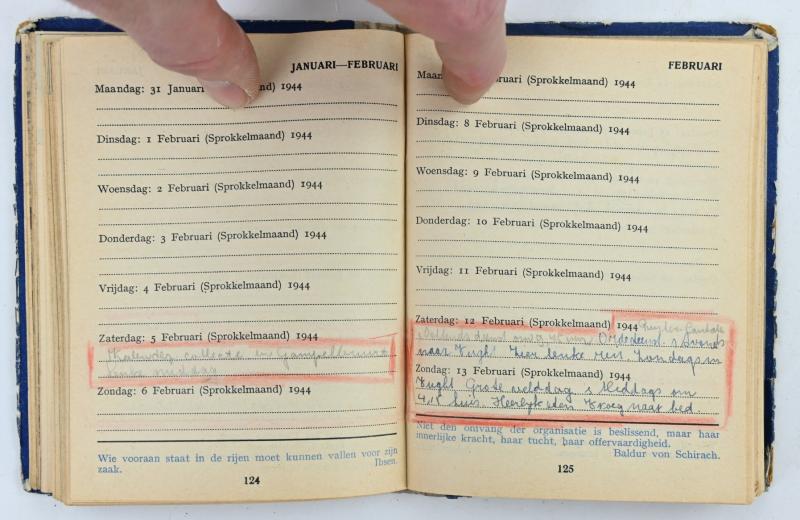 JANUARI—FEBRUARI
Maandag: 31 Januari (Sprokkelmaand) 1944
Dinsdag: 1 Februari (Sprokkelmaand) 1944
Woensdag: 2 Februari (Sprokkelmaand) 1944
Donderdag: 3 Februari (Sprokkelmaand) 1944
Vrijdag: 4 Februari (Sprokkelmaand) 1944
Zaterdag: 5 Februari (Sprokkelmaand) 1944
Kalender collecte
middag
Zondag: 6 Februari (Sprokkelmaand) 1944
Wie vooraan staat in de rijen moet kunnen vallen voor zijn
zaak.
Ibsen.
124
FEBRUARI
Maan Februari (Sprokkelmaand) 1944
Dinsdag: 8 Februari (Sprokkelmaand) 1944
Woensdag: 9 Februari (Sprokkelmaand) 1944
Donderdag: 10 Februari (Sprokkelmaand) 1944
Vrijdag: 11 Februari (Sprokkelmaand) 1944
Zaterdag: 12 Februari (Sprokkelmaand) 1944
dienst om s Avonds
naar Vught
Zondag: 13 Februari (Sprokkelmaand) 1944
Vught Grote s Middags om
huis. Heerlijk Vroeg naar bed.
Niet den omvang der organisatie is beslissend, maar haar
innerlijke kracht, haar tucht, haar offervaardigheid.
Baldur von Schirach.
125